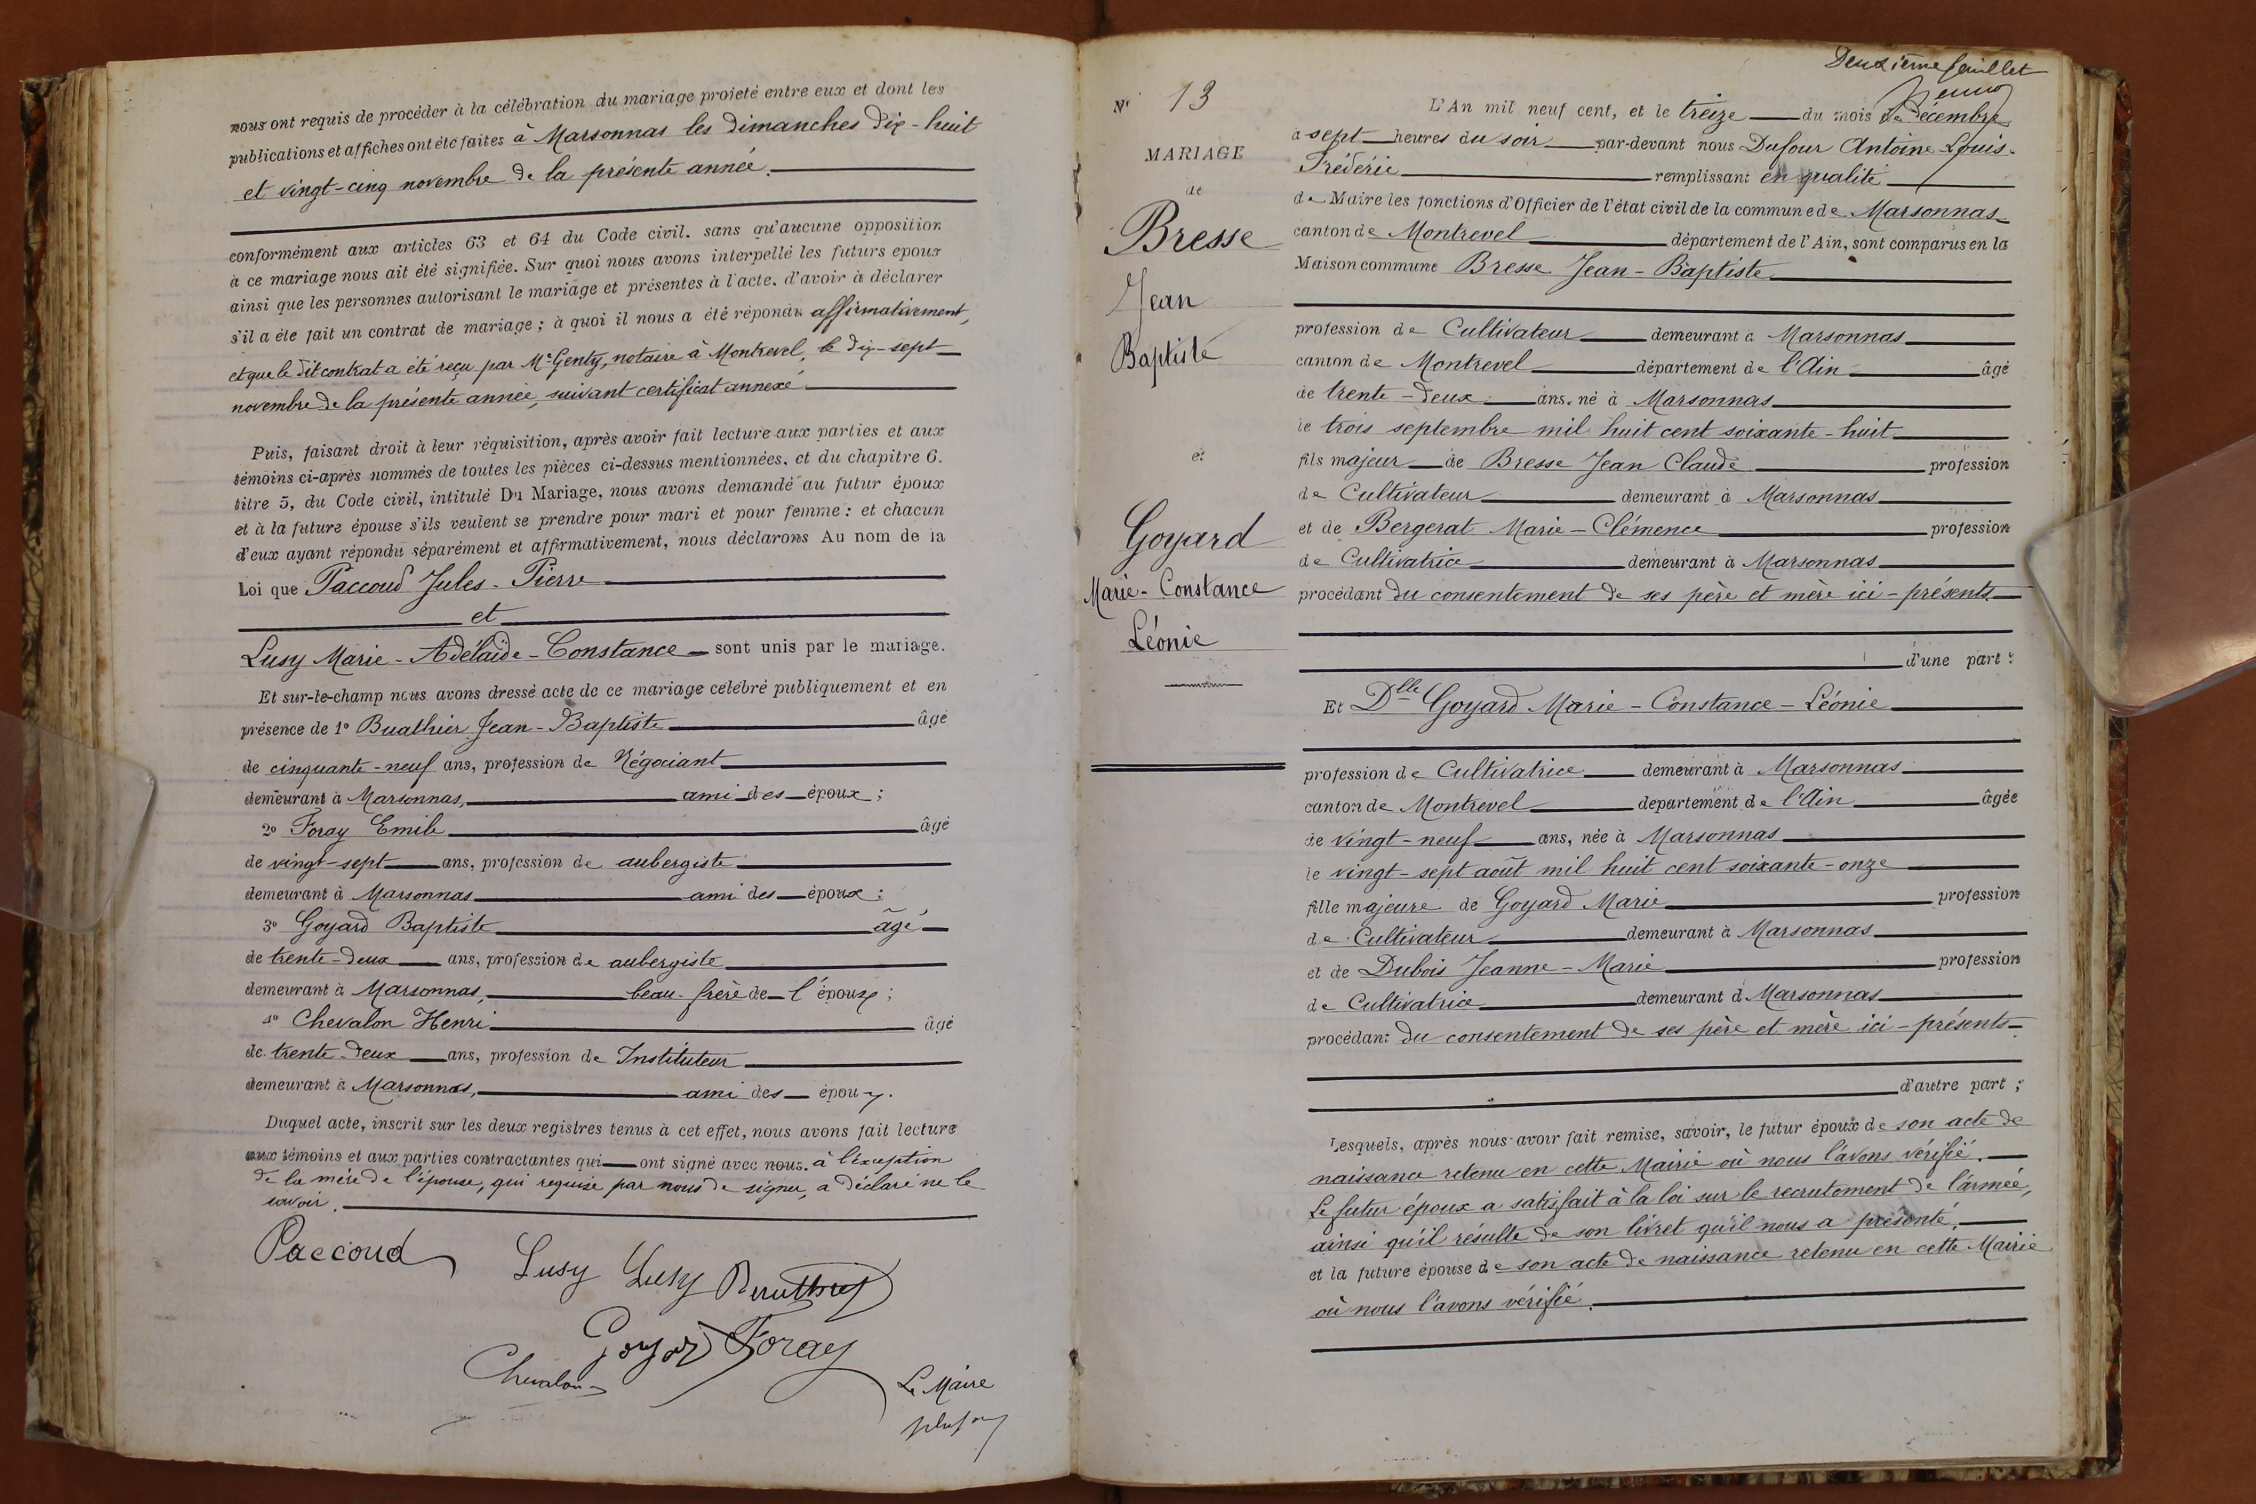 nous ont requis de procéder à la célébration du mariage projeté entre eux et dont les
publications et affiches ont été faites à Marsonnas les dimanches dix-huit
et vingt-cinq novembre de la présente année.
conformément aux articles 63 et 64 du Code civil. sans qu'aucune opposition
à ce mariage nous ait été signifiée. Sur quoi nous avons interpellé les futurs epoux
ainsi que les personnes autorisant le mariage et présentes à l'acte. d'avoir à déclarer
s'il a été fait un contrat de mariage ; à quoi il nous a été répondu affirmativement,
et que le dit contrat a été reçu par Me Genty, notaire à Montrevel, le dix-sept
novembre de la présente année, suivant certificat annexé.
Puis, faisant droit à leur réquisition, après avoir fait lecture aux parties et aux
témoins ci-après nommés de toutes les pièces ci-dessus mentionnées, et du chapitre 6.
titre 5, du Code civil, intitulé Du Mariage, nous avons demandé au futur époux
et à la future épouse s'ils veulent se prendre pour mari et pour femme : et chacun
d'eux ayant répondu séparément et affirmativement, nous déclarons Au nom de la
Loi que Paccoud Jules-Pierre
et
Lusy Marie-Adélaïde-Constance sont unis par le mariage.
Et sur-le-champ nous avons dressé acte de ce mariage célébré publiquement et en
présence de 1º Buathier Jean-Baptiste âgé
de cinquante-neuf ans, profession de Négociant
demeurant à Marsonnas, ami des époux ;
2º Foray Emile âgé
de vingt-sept ans, profession de aubergiste
demeurant à Marsonnas ami des époux ;
3º Goyard Baptiste âgé
de trente-deux ans, profession de aubergiste
demeurant à Marsonnas, beau-frère de l'époux ;
4º Chevalon Henri âgé
de trente-deux ans, profession de Instituteur
demeurant à Marsonnas, ami des époux.
Duquel acte, inscrit sur les deux registres tenus à cet effet, nous avons fait lecture
aux témoins et aux parties contractantes qui ont signé avec nous. à l'exception
de la mère de l'épouse, qui requise par nous de signer, a déclaré ne le
savoir.
Paccoud Lusy Lusy Buathier
Goyard Foray
Chevalon
Le Maire
Dufour
Deuxième feuillet
Nº 13
MARIAGE
de
Bresse
Jean
Baptiste
et
Goyard
Marie-Constance
Léonie
L'An mil neuf cent, et le treize du mois de décembre
à sept heures du soir par-devant nous Dufour Antoine Louis-
Frédéric remplissant en qualité
de Maire les fonctions d'Officier de l'état civil de la commune de Marsonnas
canton de Montrevel département de l'Ain, sont comparus en la
Maison commune Bresse Jean-Baptiste
profession de Cultivateur demeurant à Marsonnas
canton de Montrevel département de l'Ain âgé
de trente-deux ans, né à Marsonnas
le trois septembre mil huit cent soixante-huit
fils majeur de Bresse Jean Claude profession
de Cultivateur demeurant à Marsonnas
et de Bergerat Marie-Clémence profession
de Cultivatrice demeurant à Marsonnas
procédant du consentement de ses père et mère ici-présents
d'une part ;
Et Dlle Goyard Marie-Constance-Léonie
profession de Cultivatrice demeurant à Marsonnas
canton de Montrevel département de l'Ain âgée
de vingt-neuf ans, née à Marsonnas
le vingt-sept août mil huit cent soixante-onze
fille majeure de Goyard Marie profession
de Cultivateur demeurant à Marsonnas
et de Dubois Jeanne-Marie profession
de Cultivatrice demeurant à Marsonnas
procédant du consentement de ses père et mère ici-présents
d'autre part ;
Lesquels, après nous avoir fait remise, savoir, le futur époux de son acte de
naissance retenu en cette Mairie où nous l'avons vérifié.
Le futur époux a satisfait à la loi sur le recrutement de l'armée,
ainsi qu'il résulte de son livret qu'il nous a présenté.
et la future épouse de son acte de naissance retenu en cette Mairie
où nous l'avons vérifié.